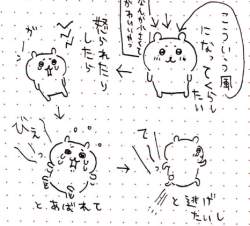 こういう風
になってくらし
たい
なんか小さくて
かわいいやつ
怒られたり
したら
ガーン
びえっ
とあばれて
てっ
と逃げ
たいし